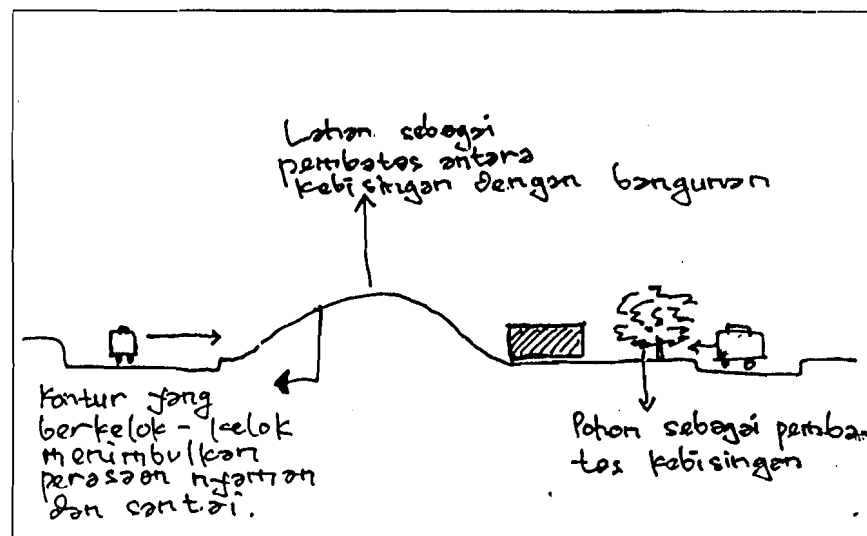 Lahan sebagai
pembatas antara
kebisingan dengan bangunan
Kontur yang
berkelok - kelok
menimbulkan
perasaan nyaman
dan santai.
Pohon sebagai pemba
tas kebisingan